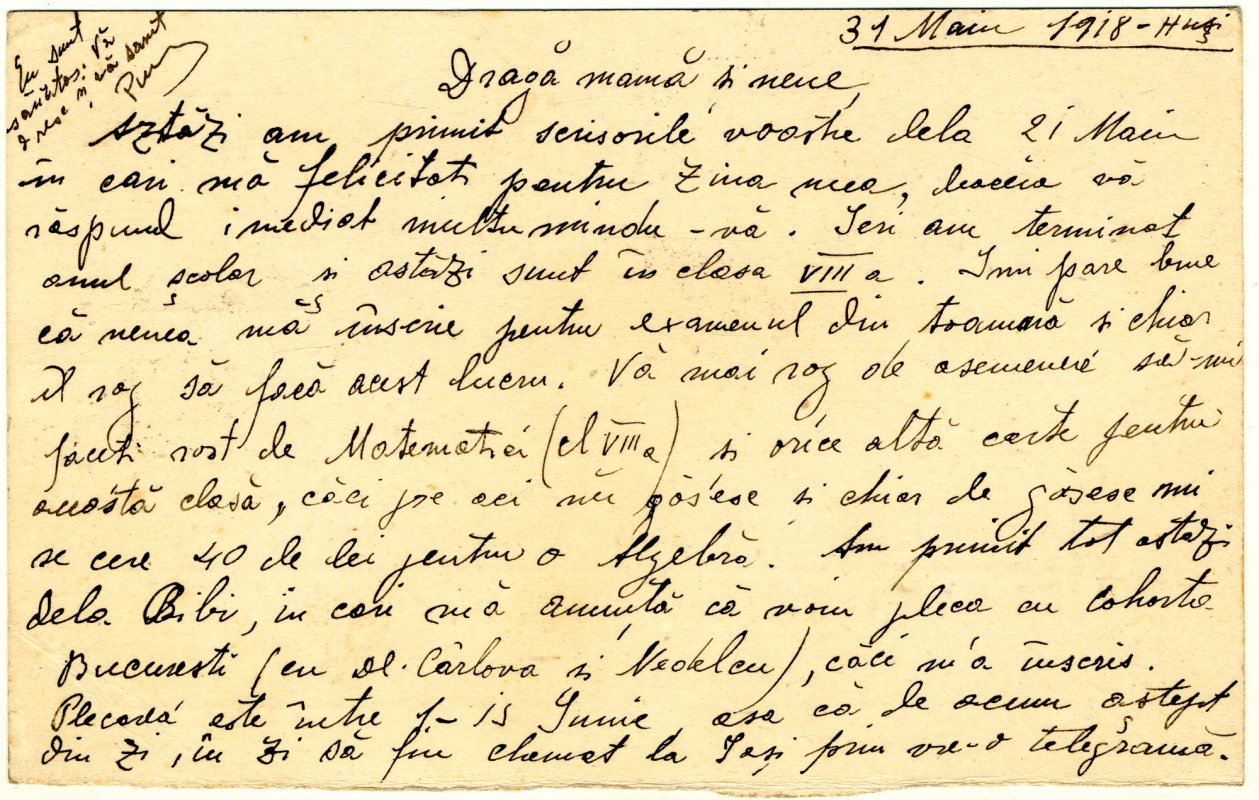 31 Maiu 1918 - Huși
Eu sunt
sănătos. Vă
și vă sărut
Dragă mamă si nene,
Aztăzi am primit scrisorile voastre dela 21 Maiu
in cari mă felicitati pentru Ziua mea, deaceia vă
răspund imediat multumindu-vă. Ieri am terminat
anul școlar si astăzi sunt în clasa VIII a. Imi pare bine
că nenea mă înscrie pentru examenul din toamnă si chiar
il rog să facă acest lucru. Vă mai rog de asemenea să-mi
faceti rost de Matematici (cl VIII a) si orice altă carte pentru
această clasă, căci pe aci nu găsesc si chiar de găsesc mi
se cere 40 de lei pentru o Algebră. Am primit tot astăzi
dela Bibi, in cari mă anunță că voiu pleca cu Cohorta
Bucuresti (cu Dl. Cârlova si Nedelcu), căci m'a înscris.
Plecarea este între 1-15 Iunie, asa că de acum aștept
din zi, în zi să fiu chemat la Iași prin vre-o telegramă.